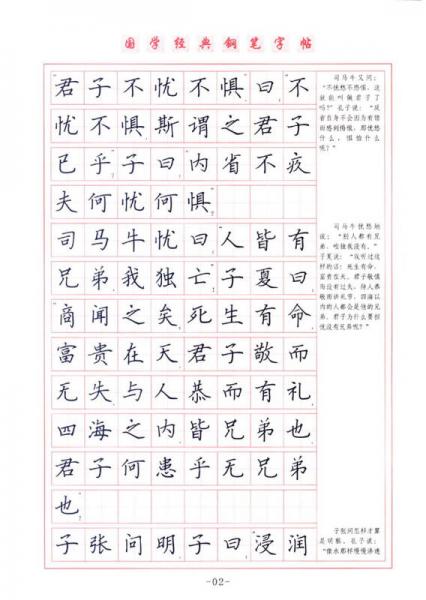 国学经典钢笔字帖
“君子不忧不惧。”曰：“不
忧不惧，斯谓之君子
已乎？”子曰：“内省不疚，
夫何忧何惧？”
司马牛忧曰：“人皆有
兄弟，我独亡。”子夏曰：
“商闻之矣：死生有命，
富贵在天。君子敬而
无失，与人恭而有礼，
四海之内皆兄弟也。
君子何患乎无兄弟
也？”
子张问明。子曰：“浸润
司马牛又问：
“不忧愁不恐惧，这
就能叫做君子了
吗？”孔子说：“反
省自身不会因为有错
而感到惭愧，那忧愁
什么，惧怕什么
呢？”
司马牛忧愁地
说：“别人都有兄
弟，唯独我没有。”
子夏说：“我听过这
样的话：死生有命，
富贵在天。君子敬慎
而没有过失，待人恭
敬而讲礼节，四海以
内的人都会是他的兄
弟。君子为什么要担
忧没有兄弟呢？”
子张问怎样才算
是明察。孔子说：
“像水那样慢慢渗透
-02-